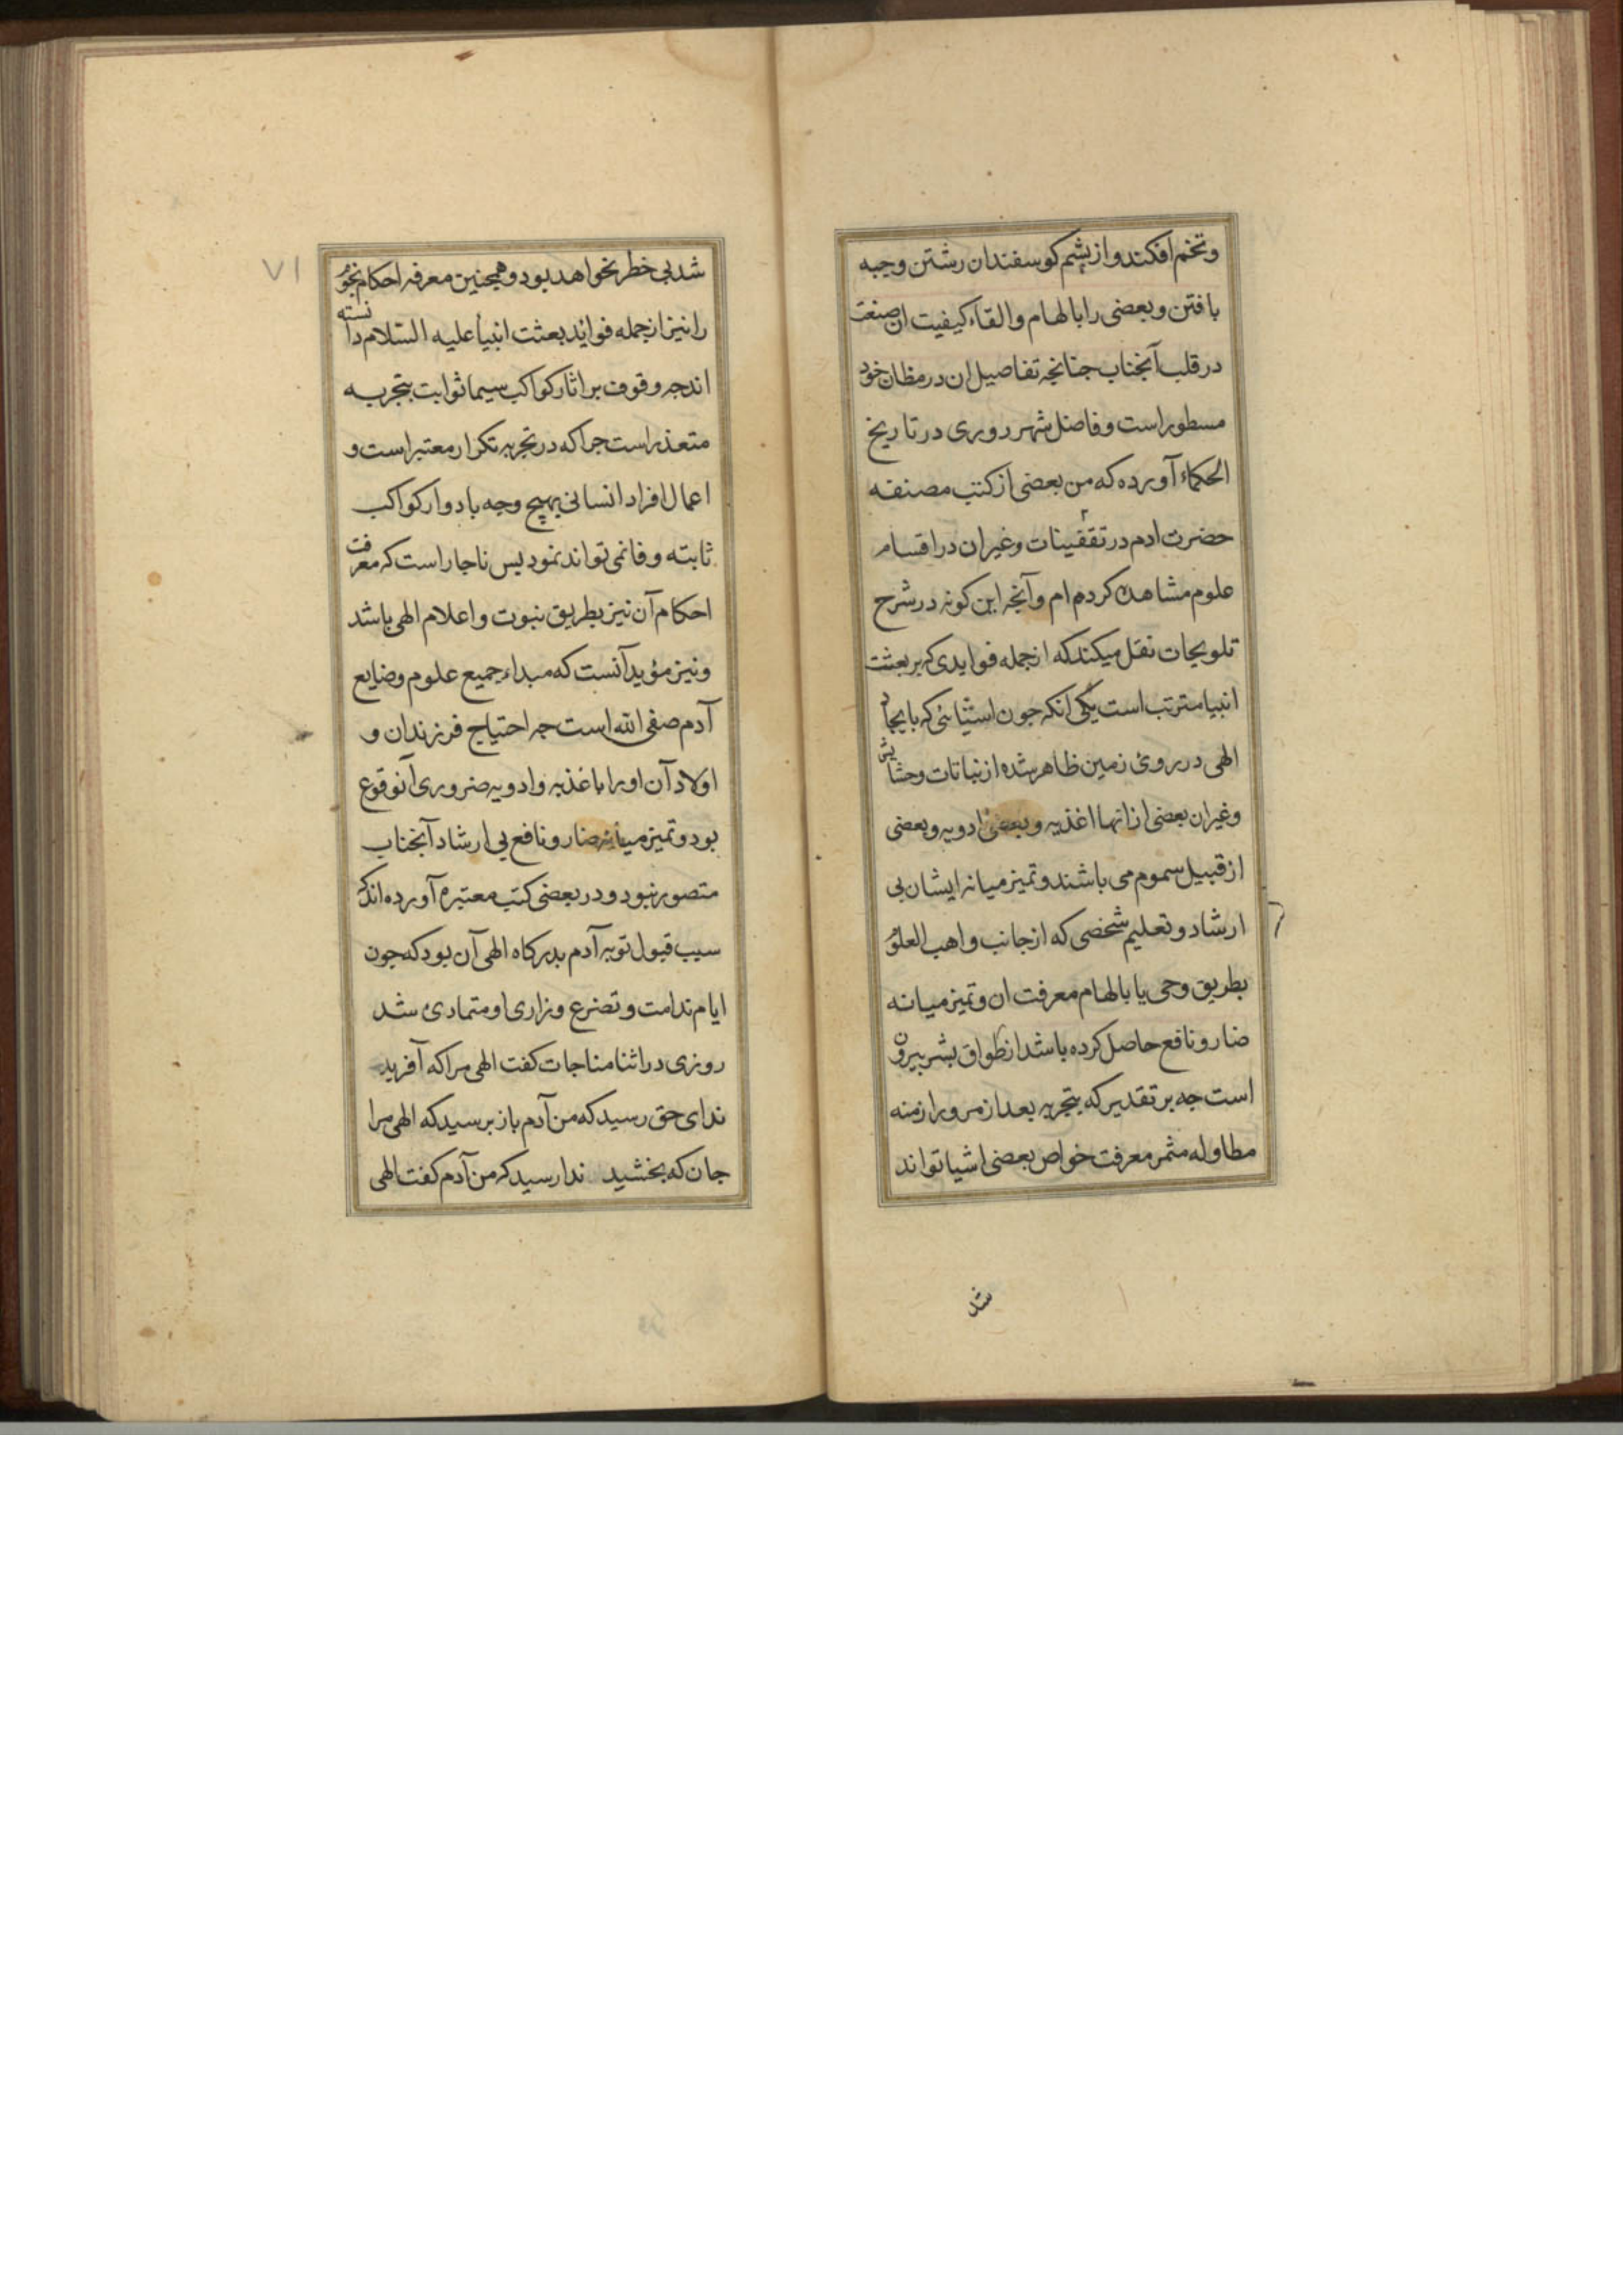 وتخم افکند و از پشم کوسفندان رشتن وجبه
بافتن و بعضی را بالهام و القاء کیفیت ان صنعت
در قلب آنجناب جنانجه تفاصیل ان در مظان خود
مسطور است و فاضل شهرروری در تاریخ
الحکماء آورده که من بعضی از کتب مصنفه
حضرت ادم در تقفینات وغیر ان در اقسام
علوم مشاهده کرده ام و آنجه این کونه در شرح
تلویحات نقل میکند که از جمله فوایدی که بر بعثت
انبیا مترتب است یکی انکه جون استیثائی که بایجاد
الهی در روی زمین ظاهر شده از نباتات وحشایش
وغیر ان بعضی از انها اغذیه و بعضی ادویه و بعضی
از قبیل سموم می باشند و تمیز میانه ایشان بی
ارشاد و تعلیم شخصی که از جانب واهب العلوم
بطریق وحی یا بالهام معرفت ان و تمیز میانه
ضار و نافع حاصل کرده باشد از طواق بشر بیرون
است جه بر تقدیر که بتجربه بعد از مرور ازمنه
مطاوله مثمر معرفت خواص بعضی اشیا تواند
شد
۷۱
شد بی خطر نخواهد بود و همجنین معرفه احکام نجوم
را نیز از جمله فواید بعثت انبیا علیه السّلام دانسته
اند جه وقوف بر اثار کواکب سیما ثوابت بتجربه
متعذر است جرا که در تجربه تکرار معتبر است و
اعمال افراد انسانی بهیچ وجه با دوار کواکب
ثابته وفا نمی تواند نمود پس ناجار است که معرفت
احکام آن نیز بطریق نبوت و اعلام الهی باشد
و نیز مؤید آنست که مبداء جمیع علوم وضایع
آدم صفی الله است جه احتیاج فرزندان و
اولاد آن او را باغذیه وادویه ضروری آنوقوع
بود و تمیز میانه ضار و نافع بی ارشاد آنجناب
متصور نبود و در بعضی کتب معتبره آورده اند که
سبب قبول توبه آدم بدرکاه الهی آن بود که جون
ایام ندامت و تضرع و زاری او متمادی شد
روزی در اثنا مناجات کفت الهی مرا که آفرید
ندای حق رسید که من آدم باز برسید که الهی مرا
جان که بخشید ندا رسید که من آدم کفت الهی